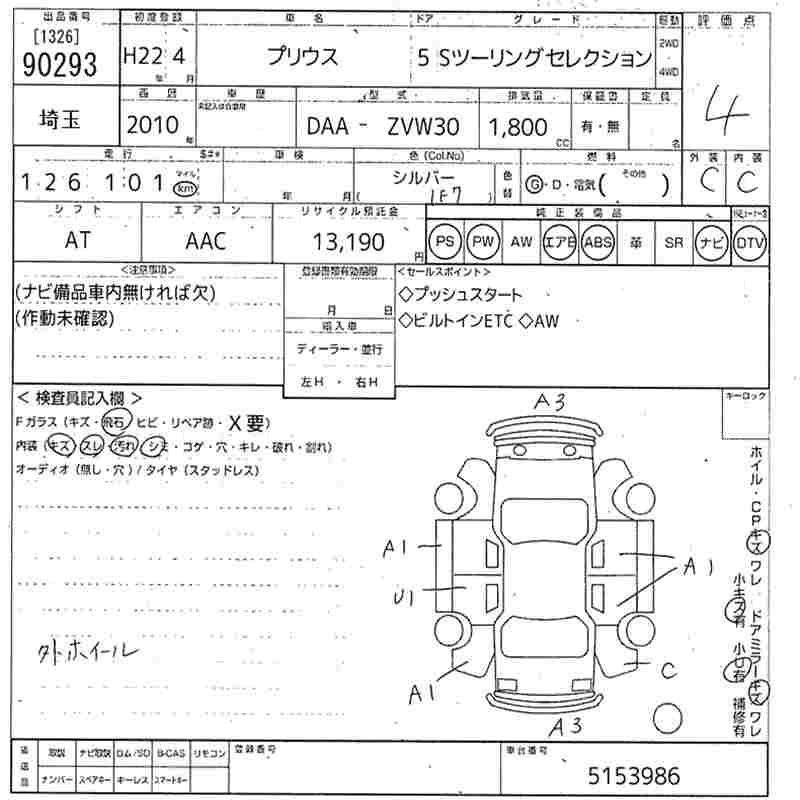 出品番号 初度登録 車名 ドア グレード 駆動 評価点
[1326]
90293 H22 4 プリウス 5 Sツーリングセレクション 2WD 4WD 4
年 月
西暦 車歴 型式 排気量 保証書 定員
未記入は自家用
埼玉 2010 DAA - ZVW30 1,800 有・無
年 CC 名
走行 車検 色(Col.No) 燃料 外装 内装
126101 マイル km 年 月 シルバー 1F7 色替 G・D・電気( その他 ) C C
シフト エアコン リサイクル預託金 純正装備品
AT AAC 13,190 円 PS PW AW エアB ABS 革 SR ナビ DTV
<注意事項> 登録書類有効期限 <セールスポイント>
(ナビ備品車内無ければ欠) ◇プッシュスタート
(作動未確認) 月 日 ◇ビルトインETC ◇AW
輸入車
ディーラー・並行
左H ・ 右H
< 検査員記入欄 > キーロック
Fガラス (キズ・飛石 ヒビ・リペア跡・X要)
内装 (キズ・スレ・汚れ・シミ・コゲ・穴・キレ・破れ・割れ)
オーディオ (無し・穴) / タイヤ (スタッドレス)
A3
A1 A1
U1
A1 C
A3
外ホイール
ホイル・CPキズワレ ドアミラーキズワレ
小キズ有 小U有 補修有
取説 ナビ取説 ロム/SD B-CAS リモコン 登録番号 車台番号
ナンバー スペアキー キーレス スマートキー 5153986